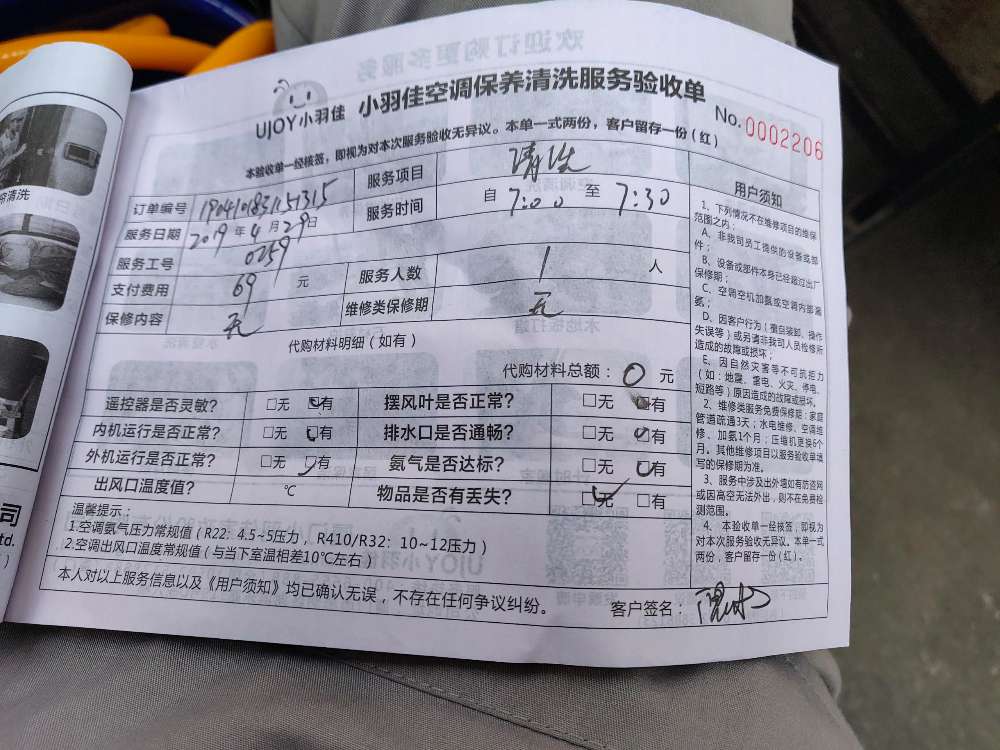 UJOY小羽佳 小羽佳空调保养清洗服务验收单
No. 0002206
本验收单一经核签，即视为对本次服务验收无异议。本单一式两份，客户留存一份（红）
订单编号 服务项目 清洗
服务日期 2019 年 4 月 29 日 服务时间 自 7:00 至 7:30
服务工号 0259
支付费用 69 元 服务人数 1 人
保修内容 无 维修类保修期 无
代购材料明细（如有）
代购材料总额： 0 元
遥控器是否灵敏？ □无 □有 摆风叶是否正常？ □无 □有
内机运行是否正常？ □无 □有 排水口是否通畅？ □无 □有
外机运行是否正常？ □无 □有 氨气是否达标？ □无 □有
出风口温度值？ ℃ 物品是否有丢失？ □无 □有
温馨提示：
1.空调氨气压力常规值（R22：4.5~5压力 ，R410/R32：10~12压力）
2.空调出风口温度常规值（与当下室温相差10℃左右）
本人对以上服务信息以及《用户须知》均已确认无误，不存在任何争议纠纷。
客户签名：
用户须知
1、下列情况不在维修项目的维保
范围之内：
A、非我司员工提供的设备或部
件；
B、设备或部件本身已经超过出厂
保修期；
C、空调空机加氨或空调内部漏
氨；
D、因客户行为（擅自装卸、操作
失误等）或另请非我司人员检修所
造成的故障或损坏；
E、因自然灾害等不可抗拒力
（如：地震、雷电、火灾、停电、
短路等）原因造成的故障或损坏。
2、维修类服务免费保修期：家庭
管道疏通3天；水电维修、空调维
修、加氨1个月；压缩机更换6个
月。其他维修项目以服务验收单填
写的保修期为准。
3、服务中涉及出外墙如有防盗网
或因高空无法外出，则不在免费检
测范围。
4、本验收单一经核签，即视为
对本次服务验收无异议。本单一式
两份，客户留存一份（红）。
清洗
司
td.